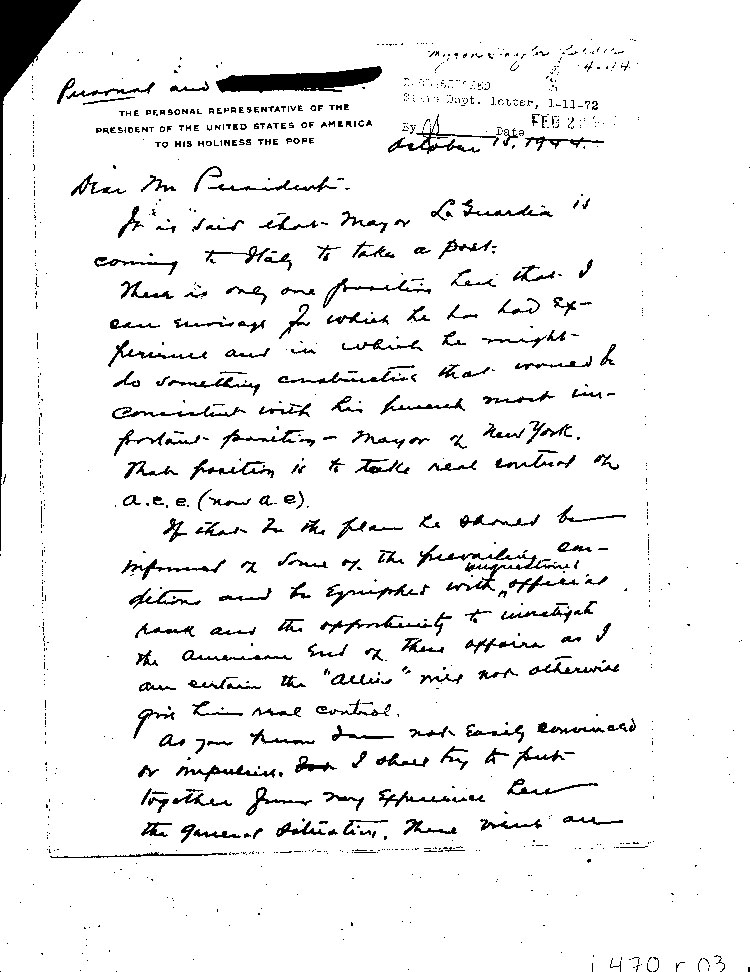 Myron Taylor folder
4-44
Personal and
DECLASSIFIED
State Dept. letter, 1-11-72
By Date FEB 2
THE PERSONAL REPRESENTATIVE OF THE
PRESIDENT OF THE UNITED STATES OF AMERICA
TO HIS HOLINESS THE POPE
October 18, 1944.
Dear Mr President-
It is said that Mayor La Guardia is
coming to Italy to take a post.
There is only one position here that I
can envisage for which he has had ex-
perience and in which he might
do something constructive that would be
consistent with his present most im-
portant position - Mayor of New York.
That position is to take real control of
A.C.C. (now A.C).
If that be the plan he should be
informed of some of the prevailing con-
ditions and be equipped with unquestioned official
rank and the opportunity to investigate
the American end of these affairs as I
am certain the "Allies" will not otherwise
give him real control.
As you know I am not easily convinced
or impulsive. I shall try to put
together from my experience here
the general situation. These views are
1470 r 03